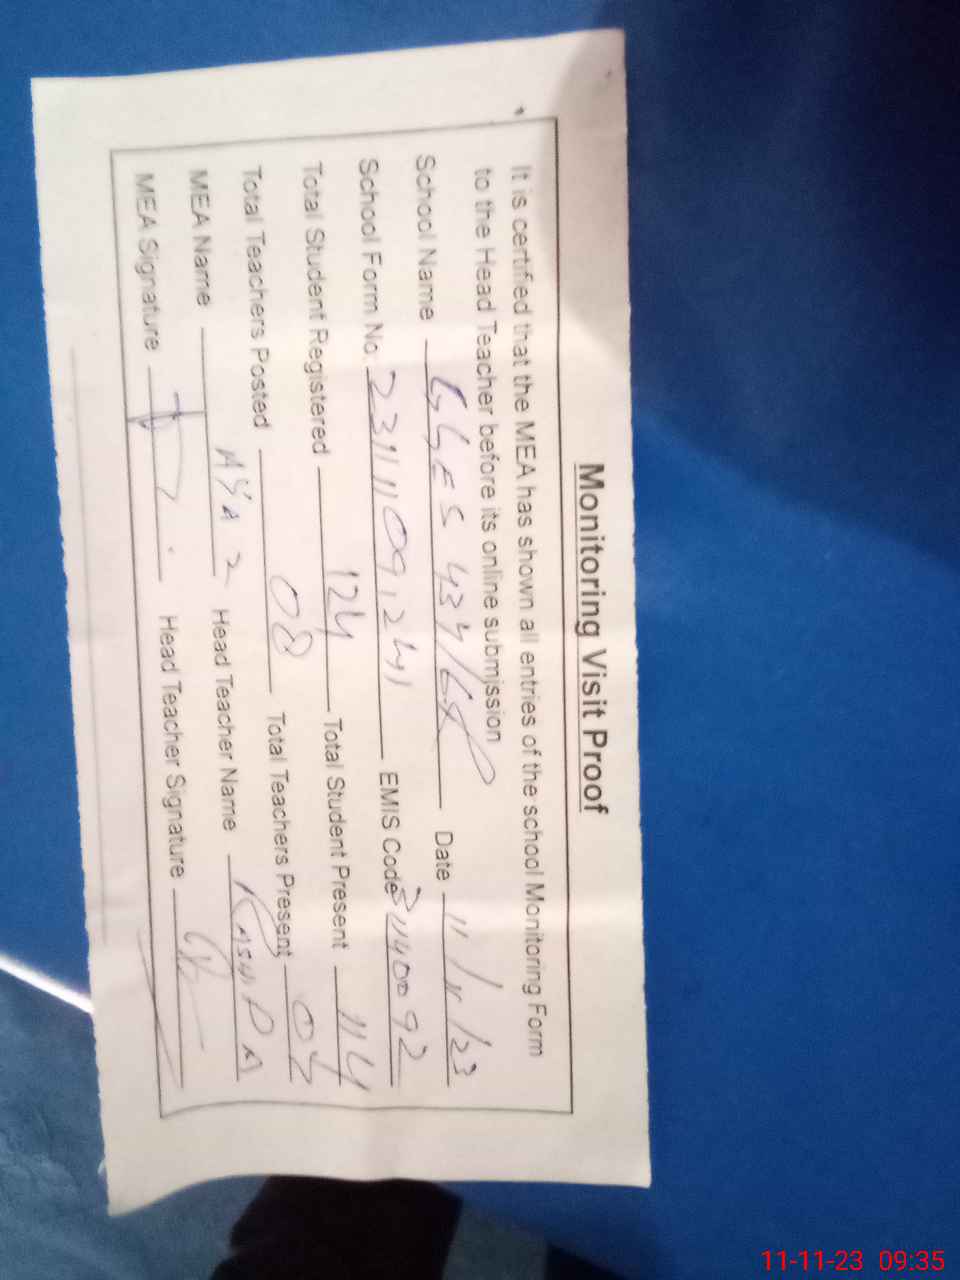 Monitoring Visit Proof
It is certified that the MEA has shown all entries of the school Monitoring Form
to the Head Teacher before its online submission
School Name GGES 434/6R Date 11/11/23
School Form No. EMIS Code 31140092
Total Student Registered 124 Total Student Present 114
Total Teachers Posted 08 Total Teachers Present
MEA Name Head Teacher Name
MEA Signature Head Teacher Signature
11-11-23 09:35